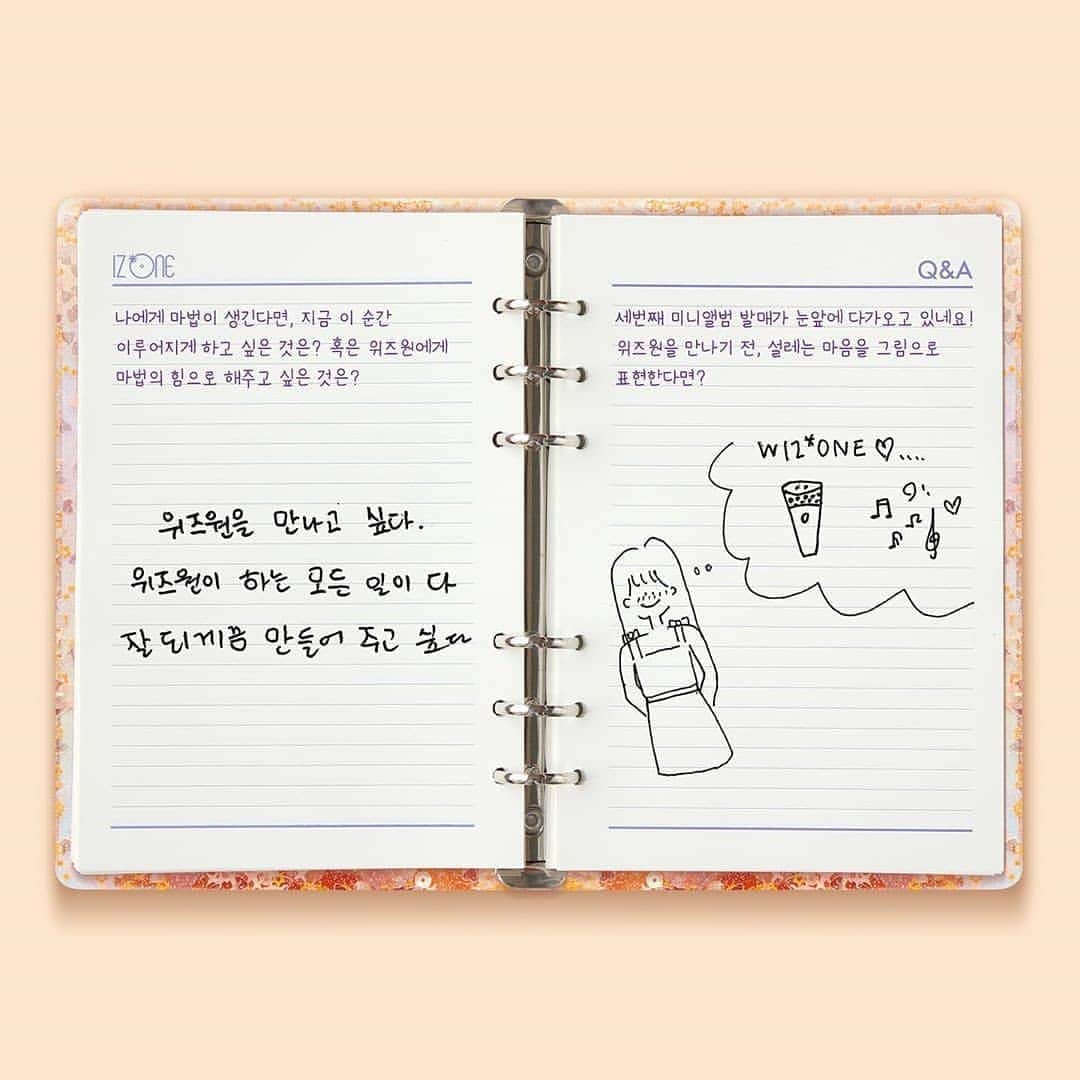 IZ*ONE
나에게 마법이 생긴다면, 지금 이 순간
이루어지게 하고 싶은 것은? 혹은 위즈원에게
마법의 힘으로 해주고 싶은 것은?
위즈원을 만나고 싶다.
위즈원이 하는 모든 일이 다
잘 되게끔 만들어 주고 싶다
Q&A
세번째 미니앨범 발매가 눈앞에 다가오고 있네요!
위즈원을 만나기 전, 설레는 마음을 그림으로
표현한다면?
WIZ*ONE ♡....